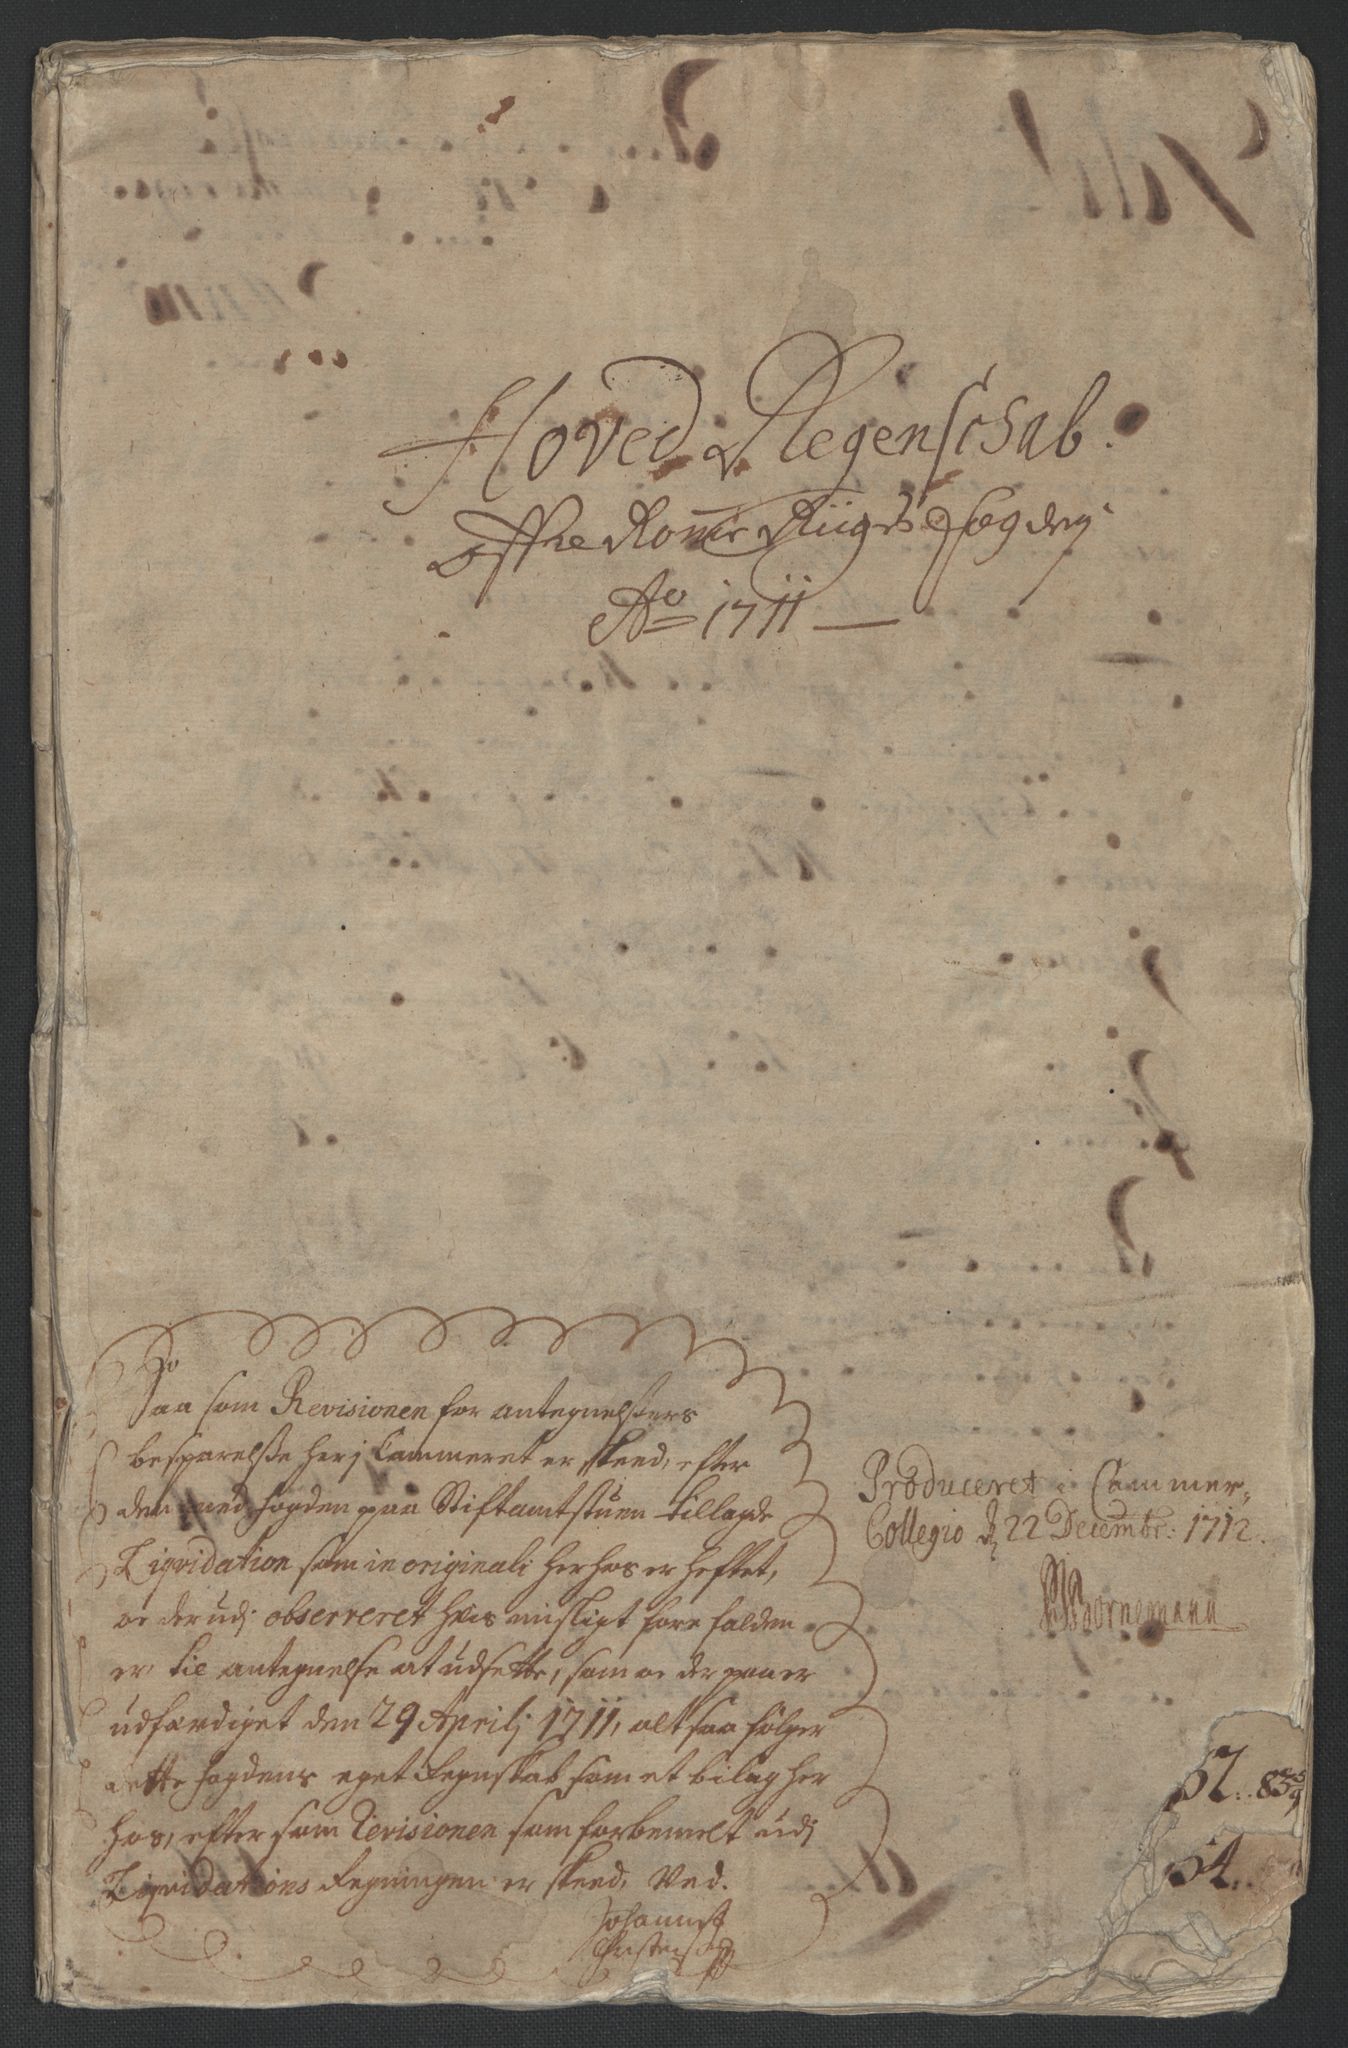 Hoved Regenschab
Øfre Romeriigs Fogderj
Ao 1711
Saa som Revisionen for antegnelsers
besparelsse her j Cammeret er skeed, efter
den med fogden paa Stiftamtstuen tillagde
Liqvidation som in originali herhos er heftet,
oc derudj observeret hvis misligt fore falden
er til antegnelse at udsette, som oc der paa er
udfærdiget den 29 Aprilj 1711, alt saa følger
dette fogdens eget Regnskab som et bilag her
hos, efter som Revisionen som forbemelt udj
Liqvidations Regningen er skeed, Ved.
Johannes
Christensen
Produceret i Cammer-
Collegio dn 22 Decembr: 1712.
Bornemann